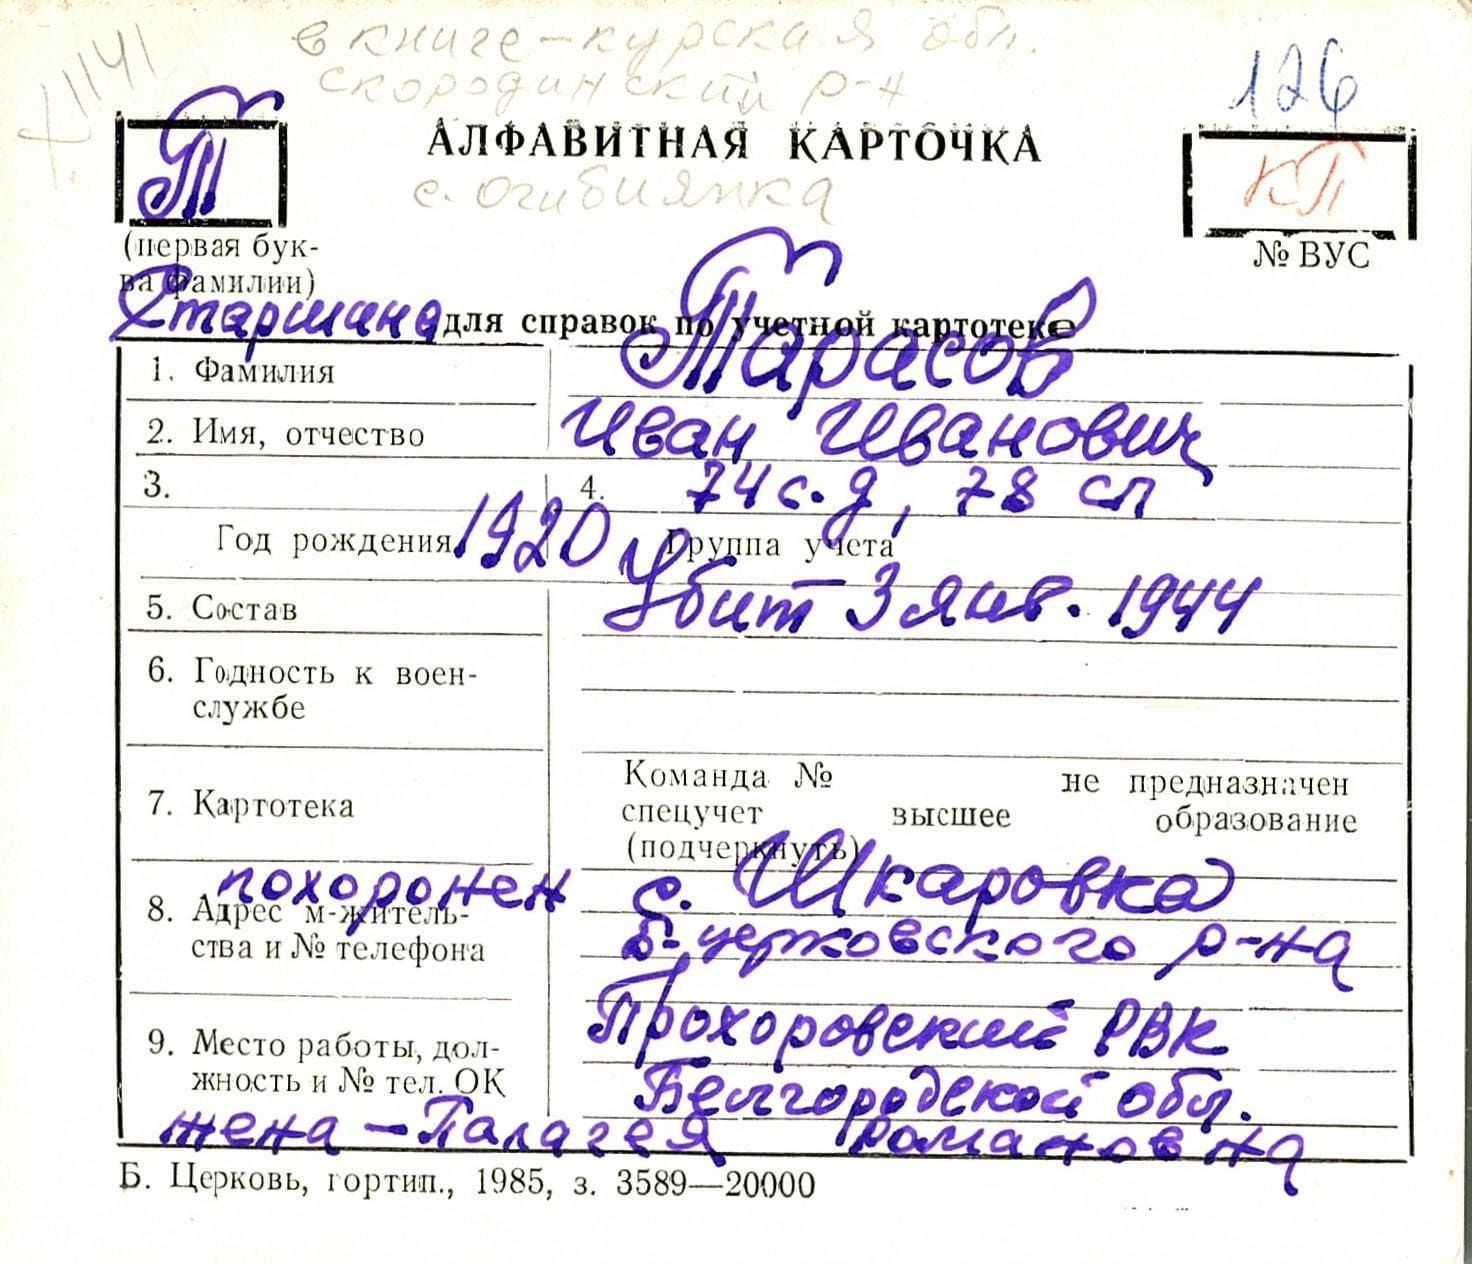 в книге - курская обл.
скородинский р-н
+1141
126
Т
АЛФАВИТНАЯ КАРТОЧКА
КП
с. Огибиянка
(первая бук-
ва фамилии)
№ ВУС
Старшина для справок по учетной картотеке
1. Фамилия Тарасов
2. Имя, отчество Иван Иванович
3. 4. 74 с.д, 78 сп
Год рождения 1920 Группа учета
5. Состав Убит 3 янв. 1944
6. Годность к воен-
службе
Команда № не предназначен
7. Картотека спецучет высшее образование
(подчеркнуть)
похоронен с. Шкаровка
8. Адрес м-житель-
ства и № телефона Б-церковского р-на
Прохоровский РВК
9. Место работы, дол-
жность и № тел. ОК Белгородской обл.
жена - Палагея Романовна
Б. Церковь, гортип., 1985, з. 3589—20000